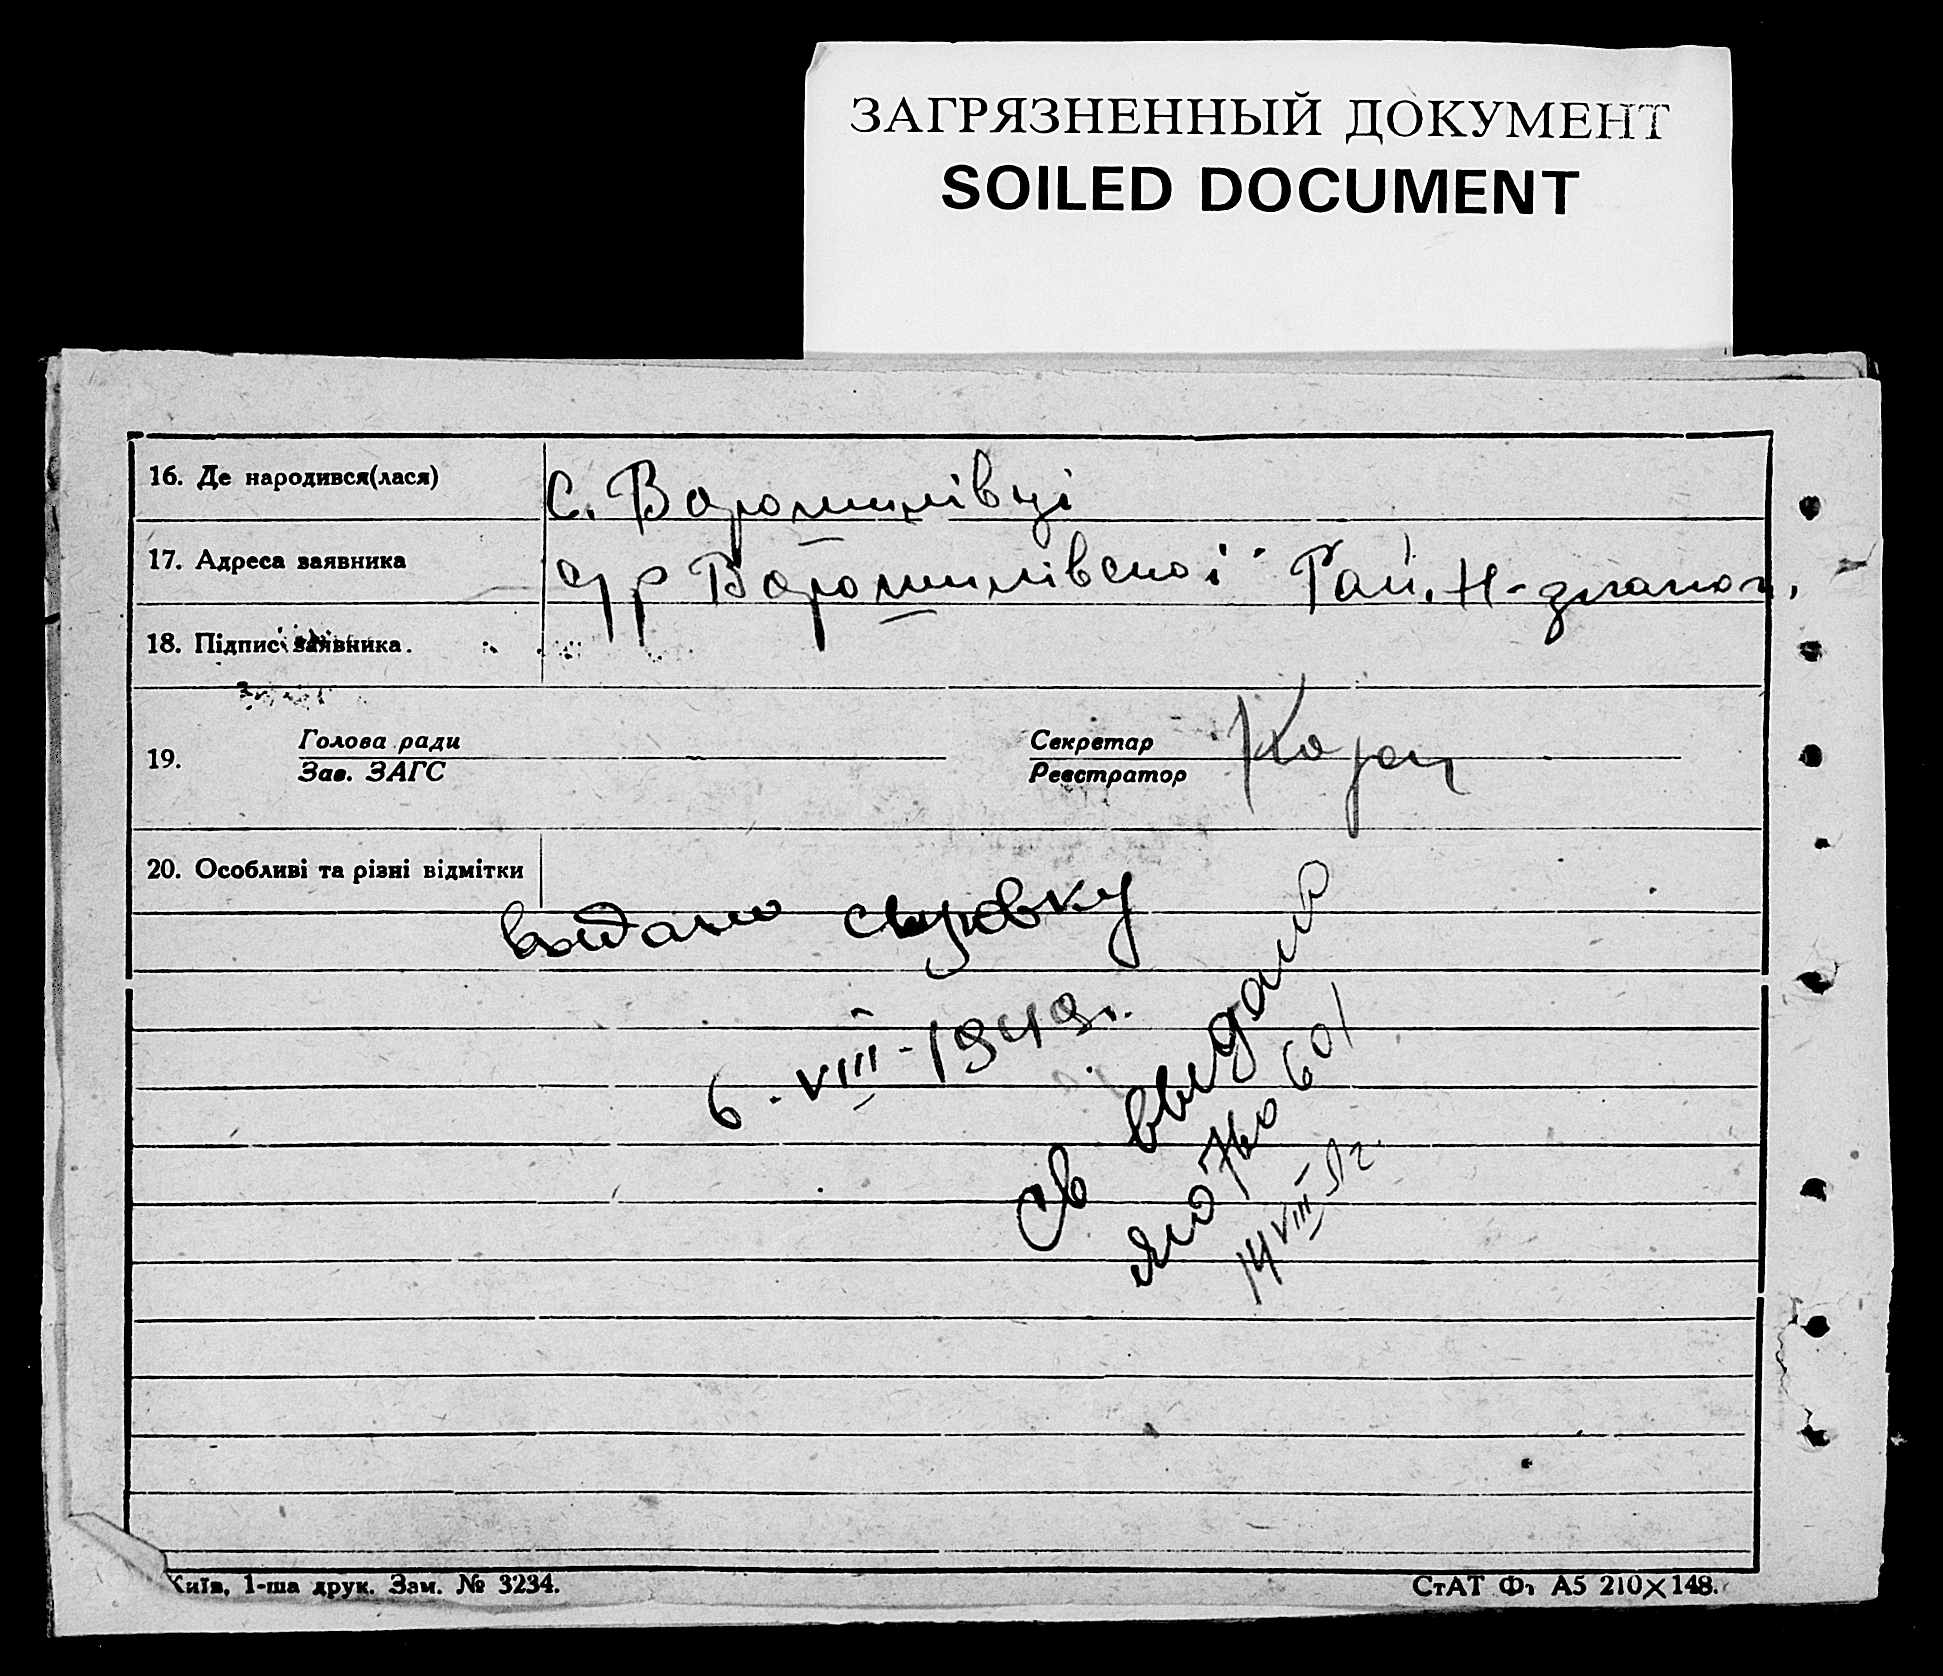 ЗАГРЯЗНЕННЫЙ ДОКУМЕНТ
SOILED DOCUMENT
16. Де народився(лася) с. Ворошилівці
17. Адреса заявника Ворошилівської Рай.
18. Підпис заявника.
19. Голова ради
Зав. ЗАГС
Секретар
Реєстратор
20. Особливі та різні відмітки
видано справку
6. VIII - 1949 г.
св выдано
601
14 VIII
Київ, 1-ша друк. Зам. № 3234.
СтАТ Ф. А5 210×148.